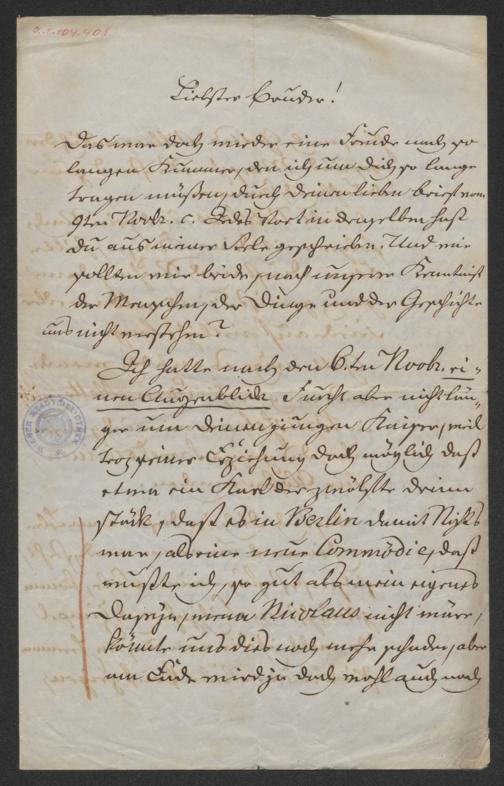 Liebster Bruder!
Das war doch wieder eine Freude nach so
langen Kummer, den ich um Dich so lange
tragen müßen, durch deinen lieben Brief vom
9ten Novbr. c. Jedes Wort in demselben hast
du aus meiner Seele geschrieben. Und wie
sollten wir beide, nach unserer Kenntniß
der Menschen, der Dinge und der Geschichte
uns nicht verstehen?
Ich hatte nach den 6.ten Novbr. ei-
nen Augenblick Furcht aber nicht län-
ger um Deinen jungen Kaiser, weil
trotz seiner Erziehung doch möglich daß
etwa ein Karl der zwölfte darin
stäck, daß es in Berlin damit Nichts
war, als eine neue Commödie, daß
wußte ich, so gut als mein eigenes
Daseyn, wenn Nicolaus nicht wäre,
könnte uns dies noch mehr schaden, aber
am Ende wird ja doch wohl auch noch